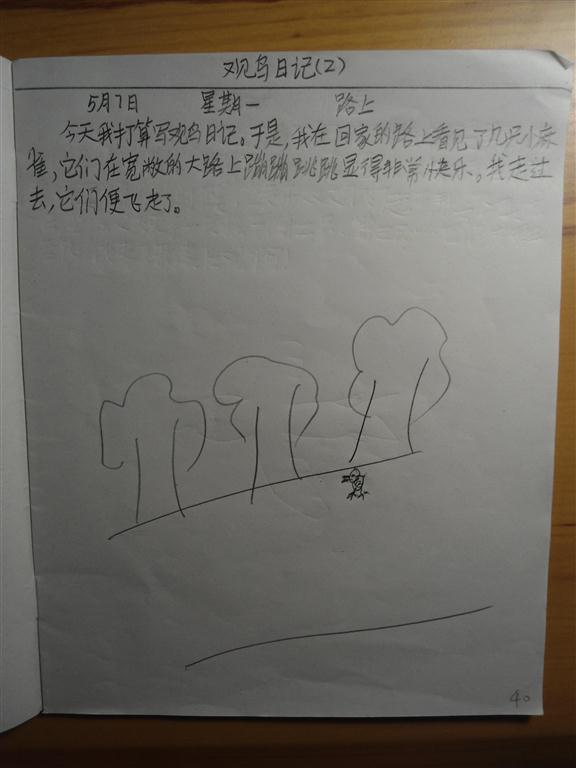 观鸟日记(2)
5月7日 星期一 路上
今天我打算写观鸟日记。于是,我在回家的路上看见了几只小麻
雀,它们在宽敞的大路上蹦蹦跳跳显得非常快乐。我走过
去,它们便飞走了。
40